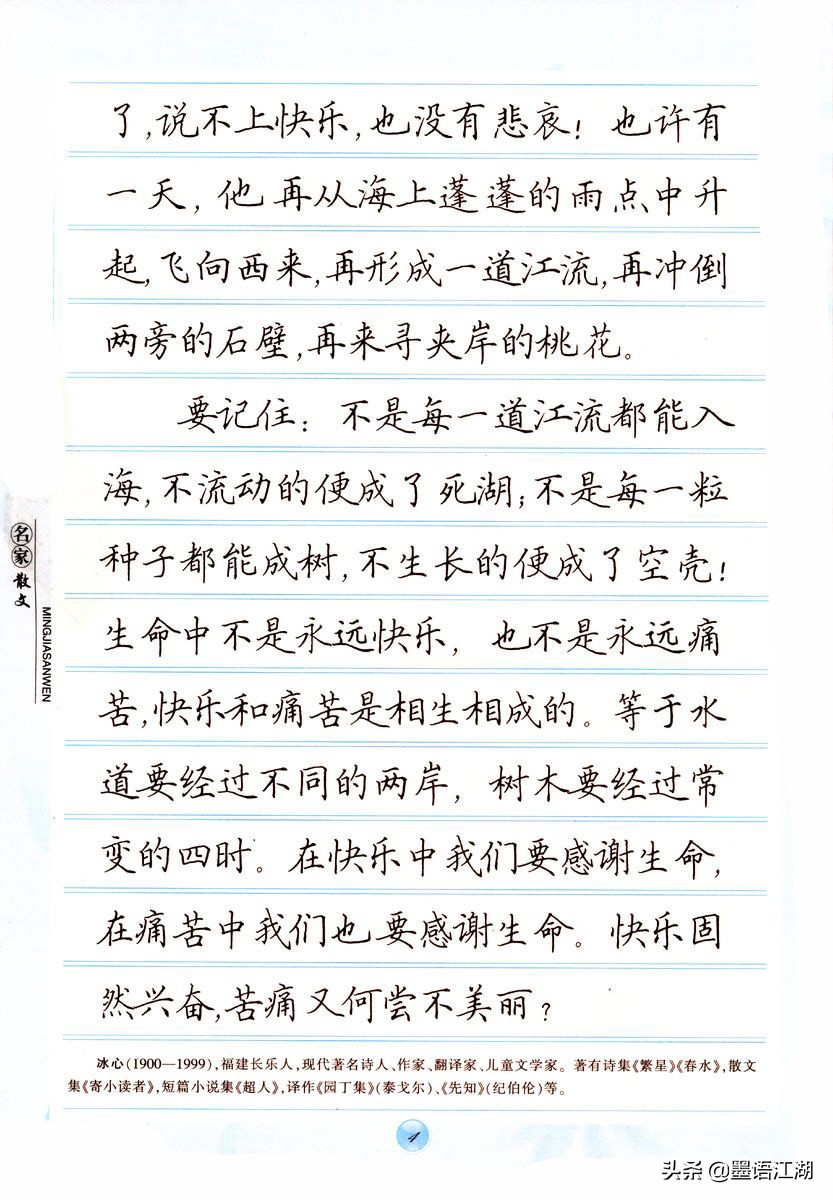 了,说不上快乐,也没有悲哀!也许有
一天,他再从海上蓬蓬的雨点中升
起,飞向西来,再形成一道江流,再冲倒
两旁的石壁,再来寻夹岸的桃花。
要记住:不是每一道江流都能入
海,不流动的便成了死湖;不是每一粒
种子都能成树,不生长的便成了空壳!
生命中不是永远快乐,也不是永远痛
苦,快乐和痛苦是相生相成的。等于水
道要经过不同的两岸,树木要经过常
变的四时。在快乐中我们要感谢生命,
在痛苦中我们也要感谢生命。快乐固
然兴奋,苦痛又何尝不美丽?
冰心(1900—1999),福建长乐人,现代著名诗人、作家、翻译家、儿童文学家。著有诗集《繁星》《春水》,散文
集《寄小读者》,短篇小说集《超人》,译作《园丁集》(泰戈尔)、《先知》(纪伯伦)等。
名家散文
MINGJIASANWEN
4
头条 @墨语江湖